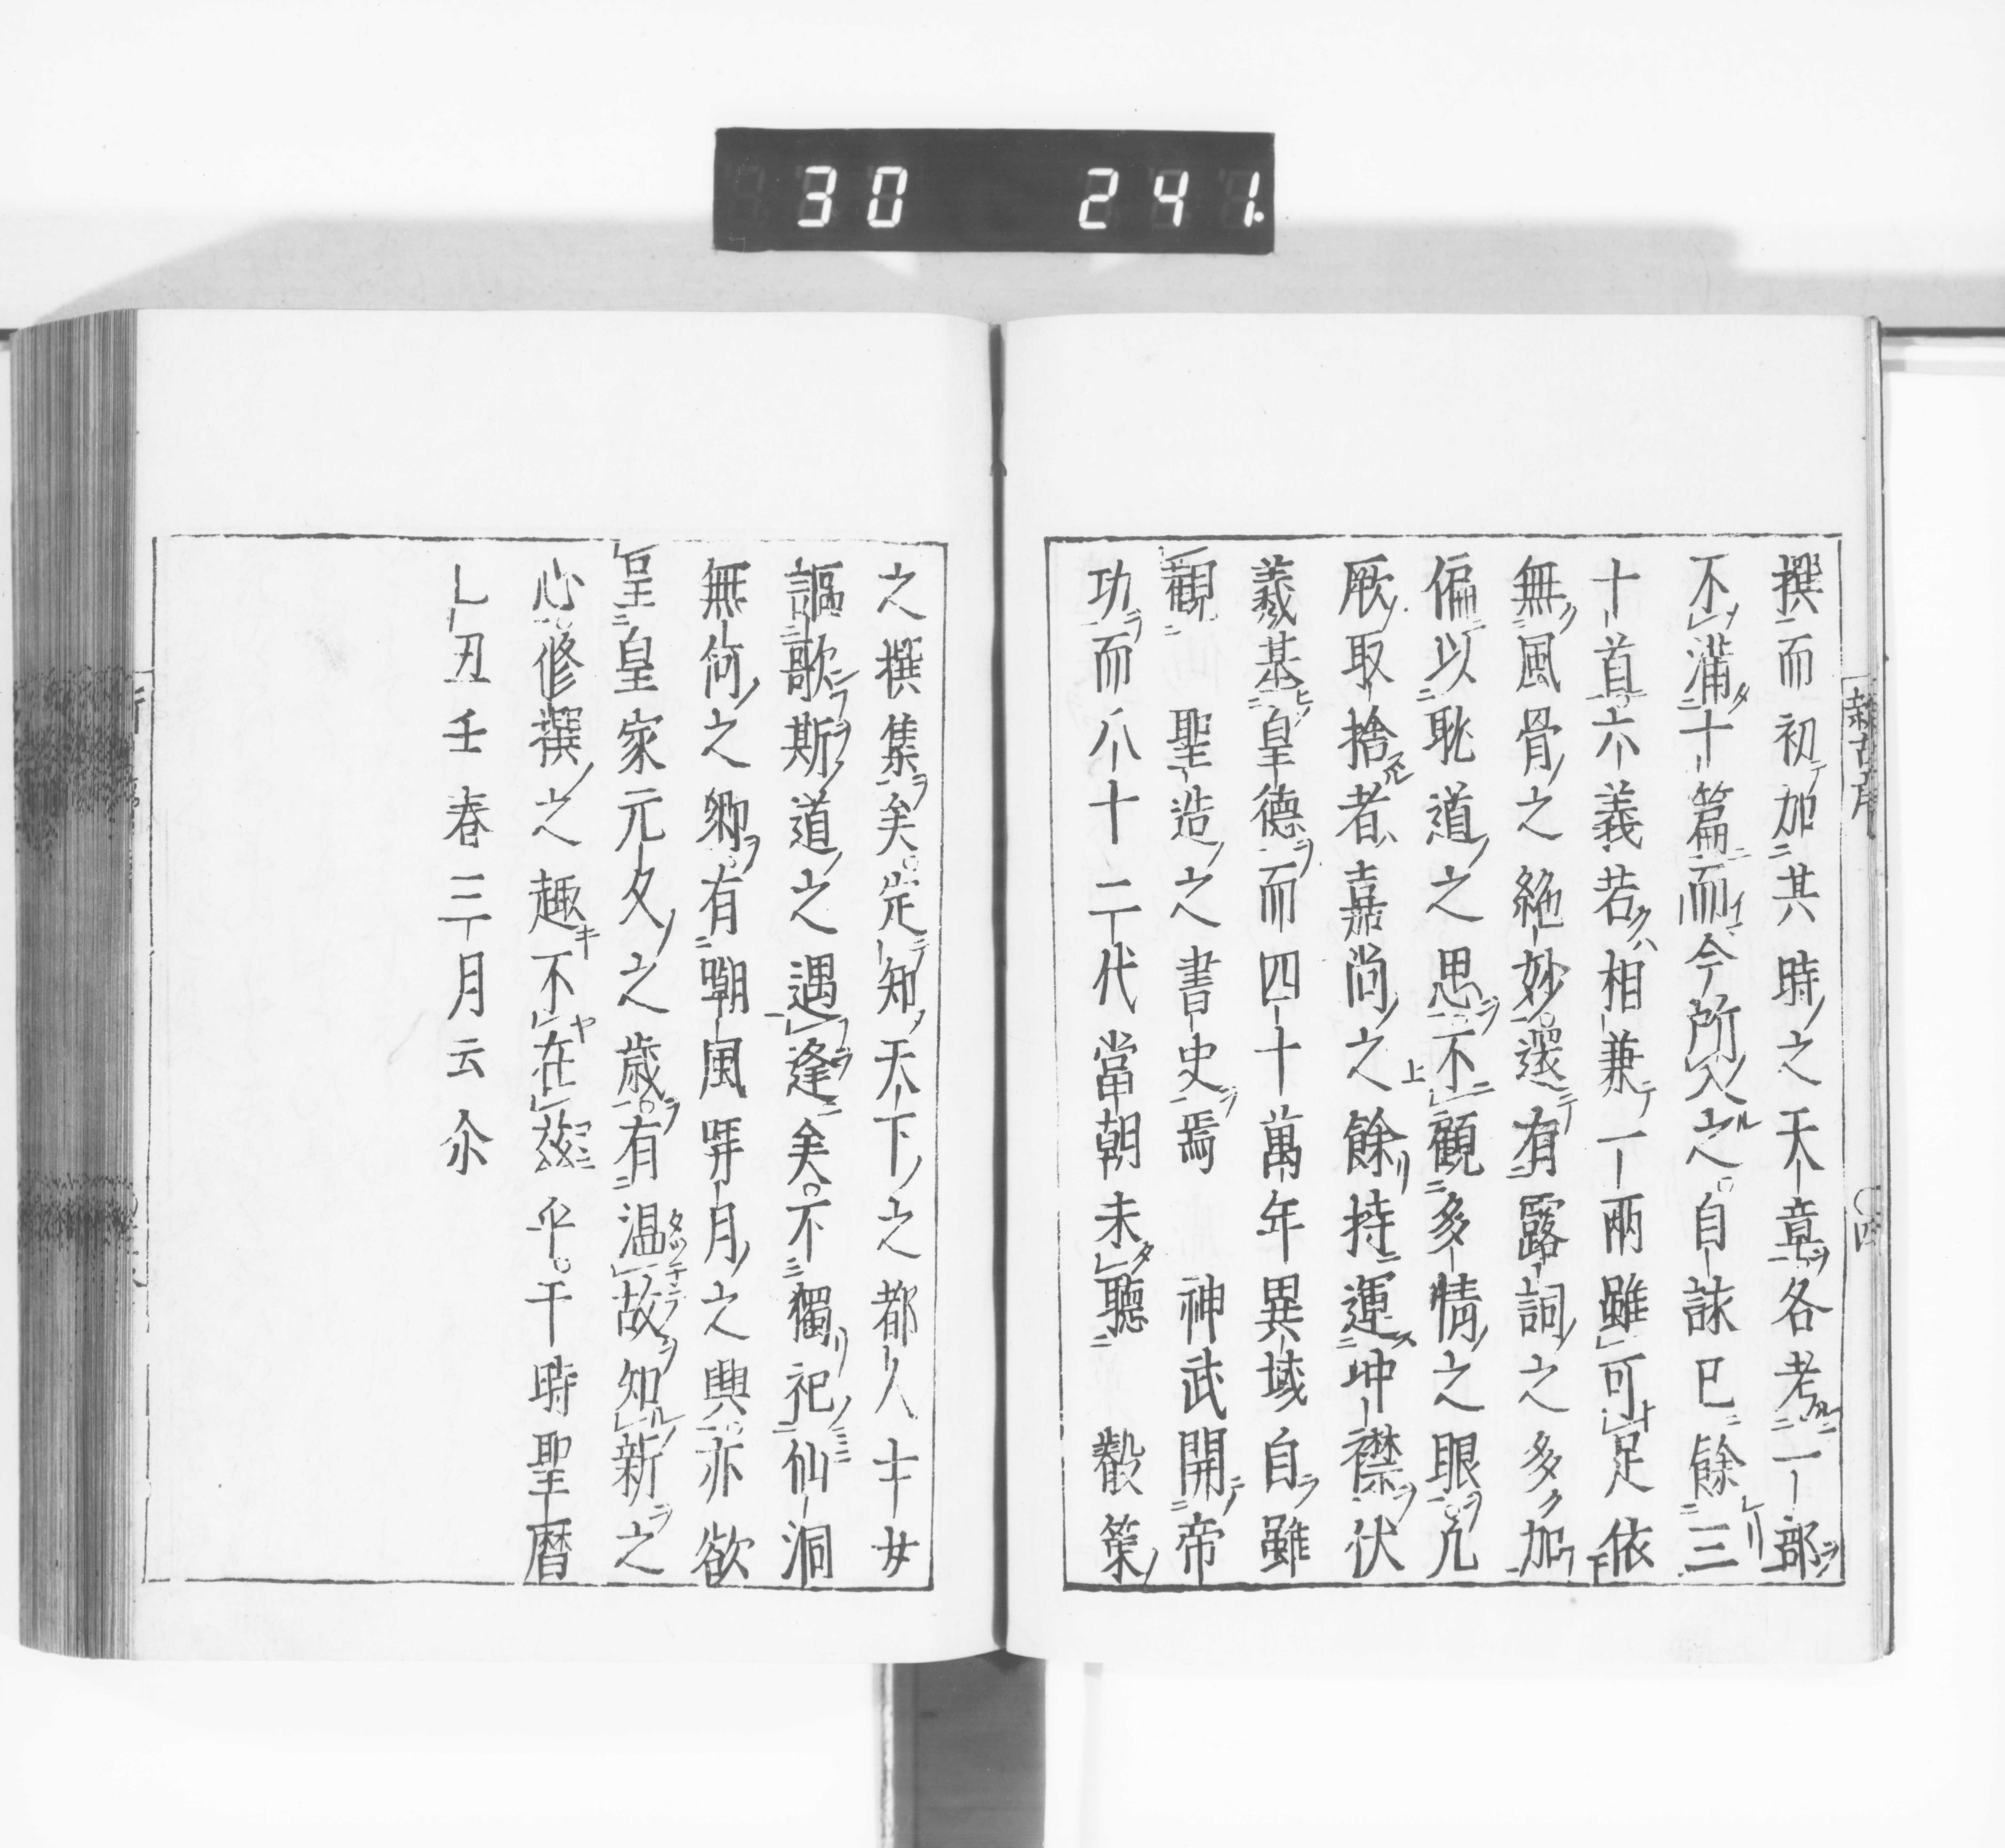 30 241.
撰而初加其時之天章各考一部
不滿十篇而今所入之自詠巳餘三
十首六義若相兼一兩雖可足依
無風骨之絶妙還有露詞之多加
偏以耽道之思不顧多情之眼凡
厥取捨者嘉尚之餘特運冲襟伏
羲基皇德而四十萬年異域自雖
觀聖造之書史焉神武開帝
功而八十二代當朝未聽叡策
之撰集矣定知天下之都人士女
謳歌斯道之遇逢矣不獨記仙洞
無何之鄉有嘲風哢月之興亦欲
呈皇家元久之歲有温故知新之
心修撰之趣不在茲乎干時聖曆
乚丑壬春三月云尒